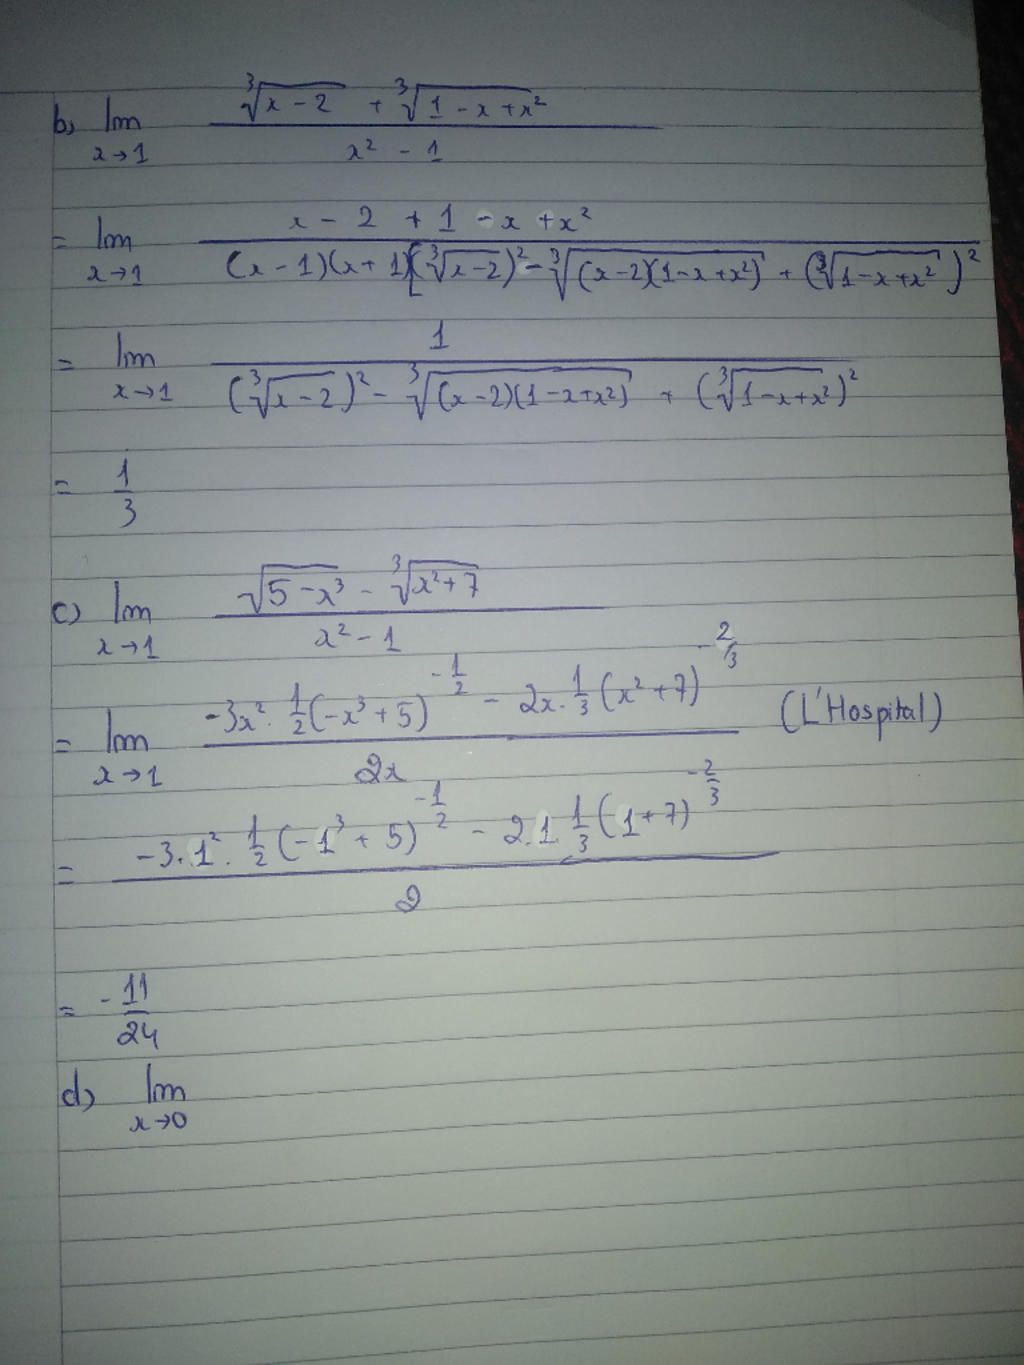 b, lim x→1 (∛(x - 2) + ∛(1 - x + x²)) / (x² - 1)
= lim x→1 (x - 2 + 1 - x + x²) / ((x - 1)(x + 1)[(∛(x-2))² - ∛((x-2)(1-x+x²)) + (∛(1-x+x²))²
= lim x→1 1 / ((∛(x-2))² - ∛((x-2)(1-x+x²)) + (∛(1-x+x²))²)
= 1/3
c) lim x→1 (√(5 - x³) - ∛(x² + 7)) / (x² - 1)
= lim x→1 (-3x² . 1/2 (-x³ + 5)^(-1/2) - 2x . 1/3 (x² + 7)^(-2/3)) / (2x) (L'Hospital)
= (-3.1² . 1/2 (-1³ + 5)^(-1/2) - 2.1. 1/3 (1 + 7)^(-2/3)) / 2
= -11/24
d) lim x→0